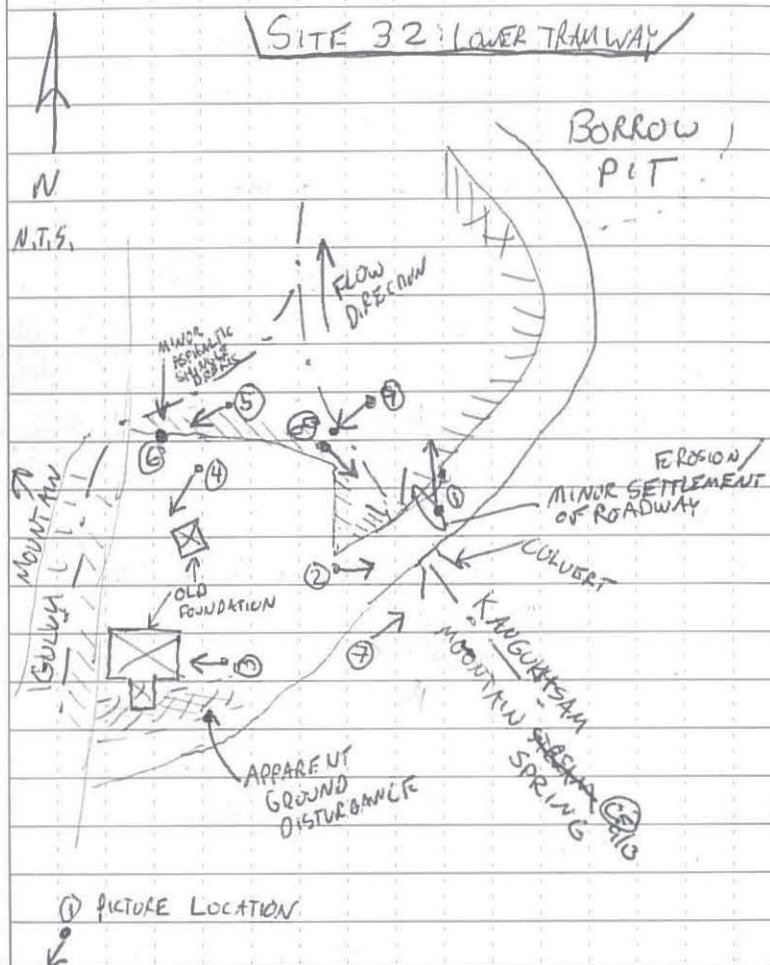 SITE 32: LOWER TRAMWAY
N
N.T.S.
BORROW
PIT
FLOW
DIRECTION
MINOR
ASPHALTIC
SHINGLE
DEBRIS
5
9
6
4
1
EROSION/
MINOR SETTLEMENT
OF ROADWAY
MOUNTAIN
GULLY
2
CULVERT
OLD
FOUNDATION
3
7
KANGUKHSAM
MOUNTAIN
SPRING
APPARENT
GROUND
DISTURBANCE
1 PICTURE LOCATION